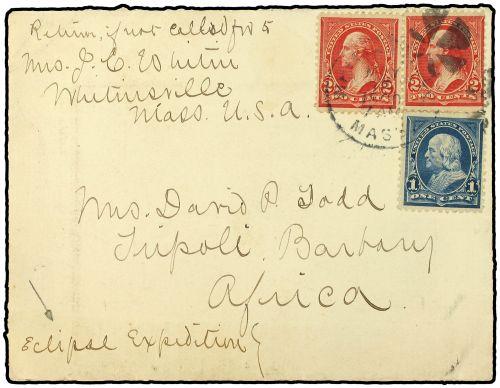 Return, if not called for 5
Mrs. J. C. Whitin
Whitinsville
Mass. U.S.A.
2 2
TWO CENTS
2 2
TWO CENTS
MASS
UNITED STATES POSTAGE
1 1
ONE CENT
Mrs. David P. Todd
Tripoli, Barbary
Africa.
Eclipse Expedition